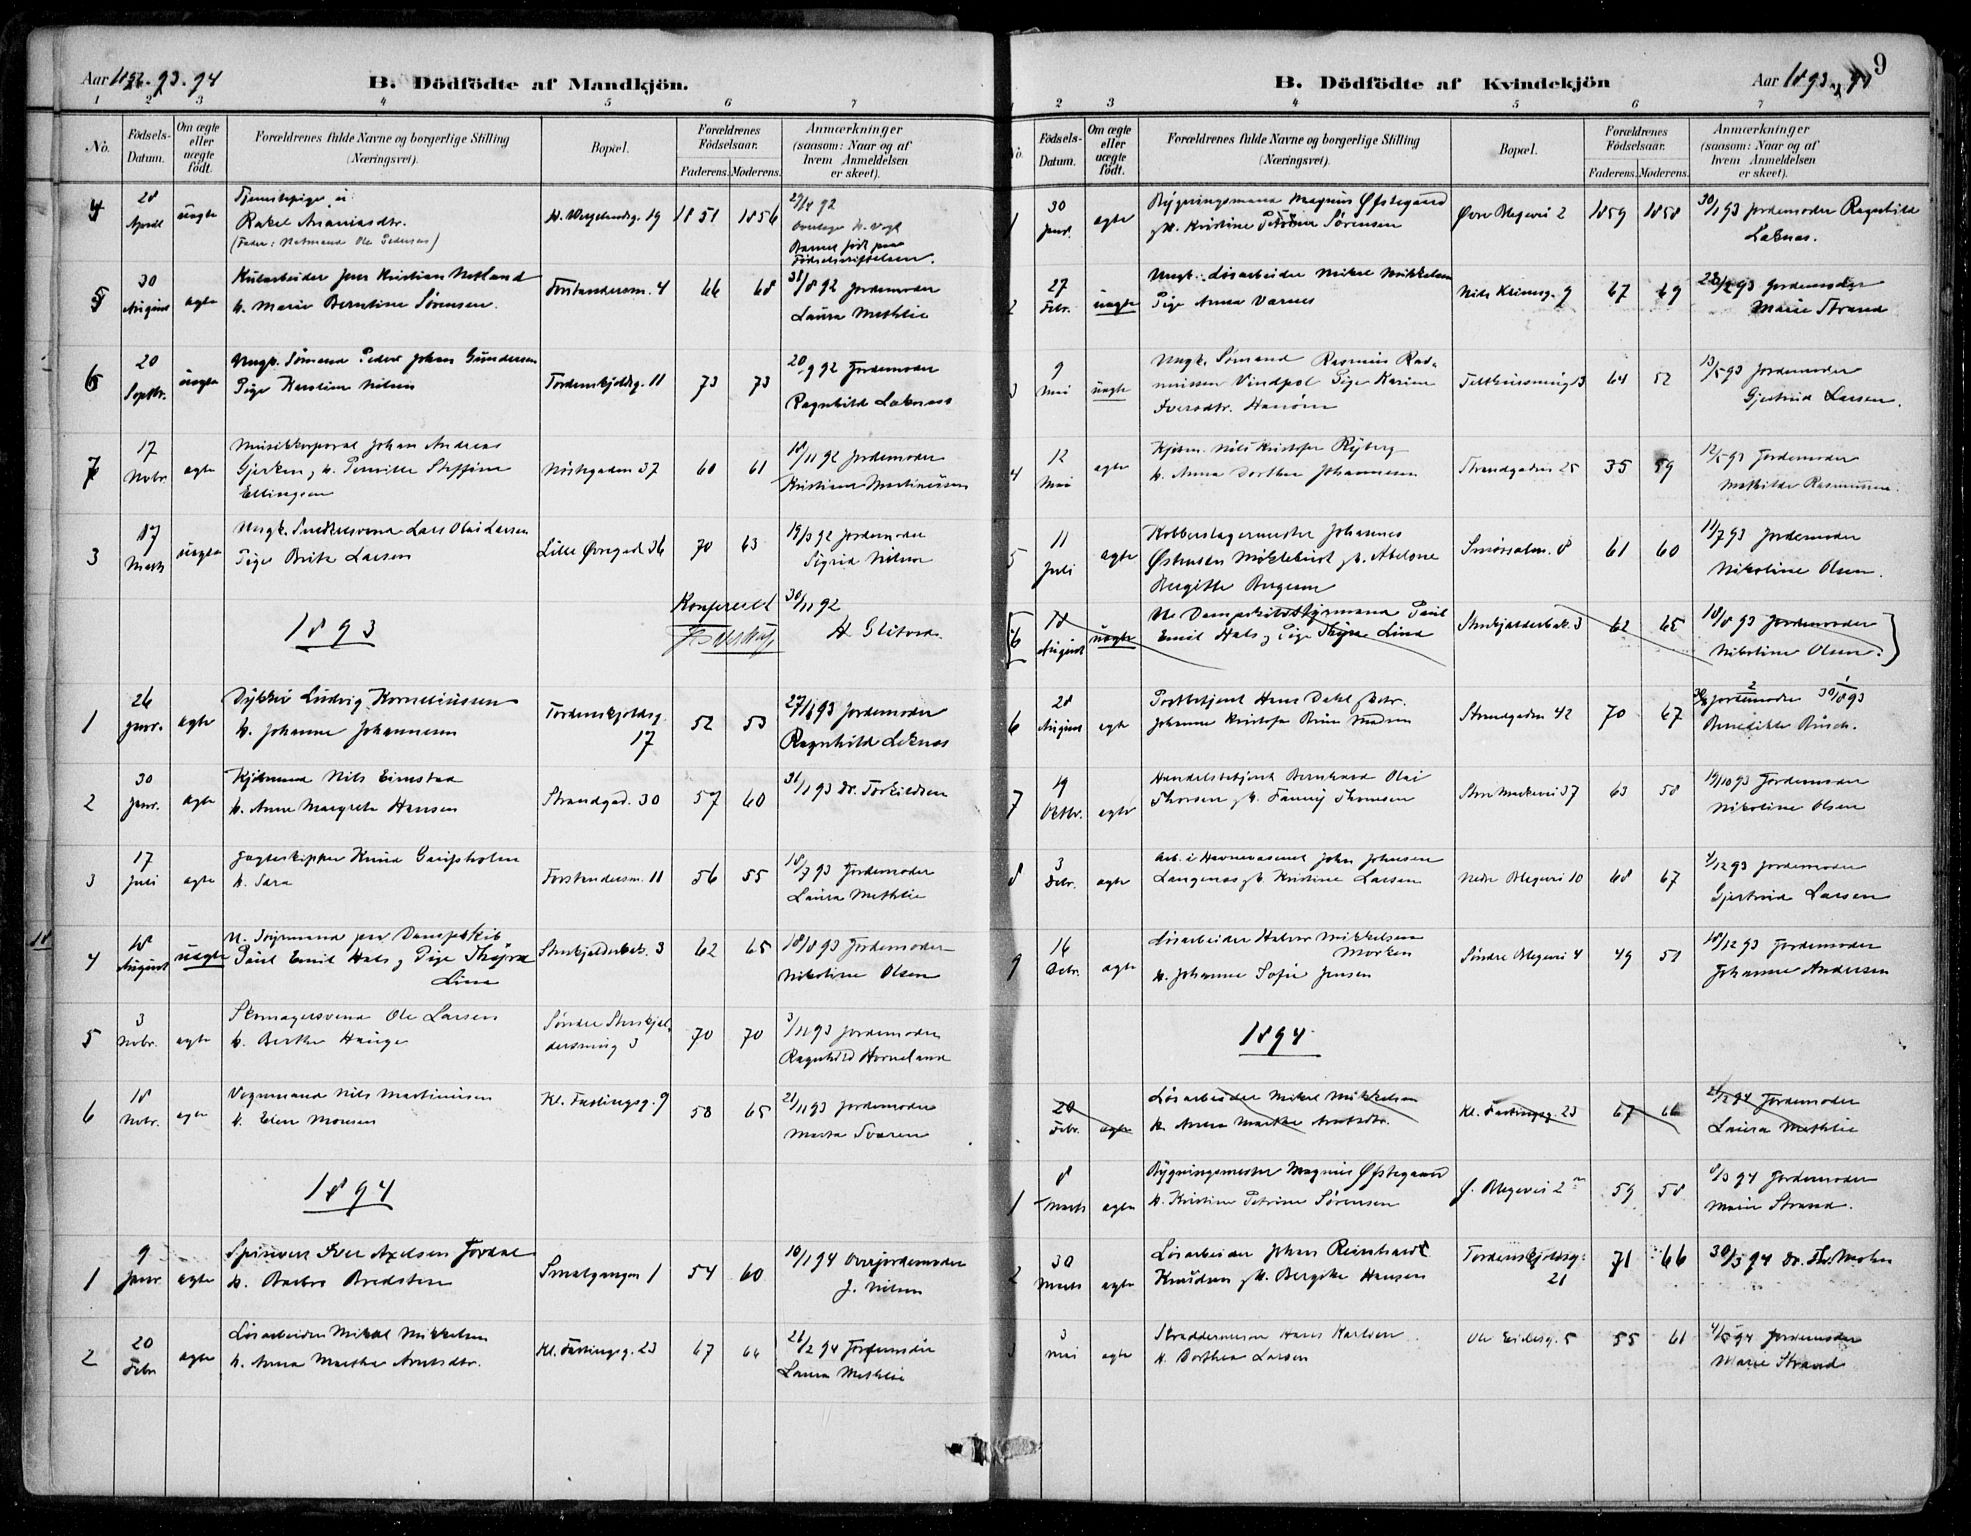 Aar 1892. 93. 94
B. Dödfödte af Mandkjön.
1 2 3 4 5 6 7
No.
Födsels-Datum.
Om ægte eller uægte födt.
Forældrenes fulde Navne og borgerlige Stilling (Næringsvei).
Bopæl.
Forældrenes Födselsaar.
Faderens. Moderens.
Anmærkninger (saasom: Naar og af hvem Anmeldelsen er skeet).
4 28 April uægte Tjenestepige
Rakel Ananiasdtr. 1851 1856 29/4 92
(Fader: Notmand Ole Pedersen)
Barnet født paa Fødselsstiftelsen.
5 30 August ægte Jens Kristian Netland
h. Marie Berntine Sørensen. Forstandersm. 4 66 68 31/8 92 Jordemoder
Laura Methlie
6 20 Septbr. uægte Ungk. Sømand Peder Johan Gundersen
Pige Karstine Nilsen Tordenskjoldsg. 11 73 73 20/9 92 Jordemoder
Ragnhild Leknæs
7 17 Novbr. ægte Musikkorporal Johan Andreas
Gjerken, h. Pernille Steffine
Ellingsen Nöstegaden 37 60 61 18/11 92 Jordemoder
Kristiane Martinussen
3 17 Marts uægte Ungk. Snedkersvend Lars Olai Larsen
Pige Brite Larsen Lille Øvregd. 36 70 63 19/3 92 Jordemoder
Sigrid Nilsen
Konfereret 30/11 92
1893
1 26 Janr. ægte Dykker Ludvig Korneliussen
h. Johanne Johannesen Tordenskjoldsg. 17 52 53 27/1 93 Jordemoder
Ragnhild Leknæs
2 30 Janr. ægte Kjöbmand Nils Eimstad
h. Anne Margrete Hansen Strandgad. 30 57 60 31/1 93 Dr. Torkildsen
3 17 Juli ægte Jagteskipper Knud
h. Sara Forstandersm. 11 56 55 18/7 93 Jordemoder
Laura Methlie
4 18 August uægte U. Styrmand paa Dampskib
Paul Emil Hals, Pige Thyra
Lina 3 62 65 18/8 93 Jordemoder
Nikoline Olsen
5 3 Novbr. ægte Skomagersvend Ole Larsen
h. Berthe Hauge Søndre 3 70 70 3/11 93 Jordemoder
Ragnhild Horneland
6 18 Novbr. ægte Vognmand Nils Martinusen
h. Elen Monsen Kl. Fastingsg. 9 58 65 21/11 93 Jordemoder
Marta Svaren
1894
1 9 Janr. ægte Iver Axelsen Fordal
h. Barbro Bredsten Smalgangen 1 54 60 10/1 94 Overjordemoder
J. Nilsen
2 20 Febr ægte Løsarbeider Mikal Mikkelsen
h. Anna Marthe Kl. Fastingsg. 23 67 66 21/2 94 Jordemoder
Laura Methlie
9
B. Dödfödte af Kvindekjön
Aar 1893. 94
1 2 3 4 5 6 7
No.
Födsels-Datum.
Om ægte eller uægte födt.
Forældrenes fulde Navne og borgerlige Stilling (Næringsvei).
Bopæl.
Forældrenes Födselsaar.
Faderens. Moderens.
Anmærkninger (saasom: Naar og af hvem Anmeldelsen er skeet).
1 30 Janr. ægte Bygningsmand Magnus Øfstegaard
h. Kristine Petrine Sørensen Øvre Blegevei 2 1859 1858 30/1 93 Jordemoder Ragnhild
Leknæs.
2 27 Febr. uægte Ungk. Løsarbeider Mikal Mikkelsen
Pige Anna Varnes Nils Klimsg. 9 67 69 28/2 93 Jordemoder
Marie Strand
3 9 Mai uægte Ungk. Sømand Rasmus Rasmussen
Vindpol Pige Karine
Iversdtr. 13 64 52 13/5 93 Jordemoder
Gjertrud Larsen.
4 12 Mai ægte Kjöbm. Nils Kristofer Ryberg
h. Anna Dorthea Johannesen Strandgaden 25 35 59 12/5 93 Jordemoder
Mathilde Rasmussen.
5 11 Juli ægte Kobberslagermester Johannes
Østensen Myklebust, h. Abelone
Bergitte Bergesen 8 61 60 11/7 93 Jordemoder
Nikoline Olsen.
6 18 August uægte U. Dampskibsstyrmand Paul
Emil Hals, Pige Thyra Lina 3 62 65 18/8 93 Jordemoder
Nikoline Olsen.
6 28 August ægte Hans Dahl
Johanne Strandgaden 42 70 67 Jordemoder 30/8 93
Benedikte Busch.
7 19 Oktbr. ægte Handelsbetjent Bernhard Olai
Thorsen, h. Fanny Thomsen 37 63 58 19/10 93 Jordemoder
Nikoline Olsen
8 3 Debr. ægte Arb. i Havnevæsenet John Johnsen
Langenæs, h. Kristine Larsen Nedre Blegevei 10 68 67 4/12 93 Jordemoder
Gjertrud Larsen
9 16 Debr. ægte Løsarbeider Halvor Mikkelsen
Morken
h. Johanne Sofie Jensen Søndre Blegevei 4 49 51 18/12 93 Jordemoder
Johanne Andersen
1894
20 Febr. ægte Løsarbeider Mikal Mikkelsen
h. Anna Marthe Kl. Fastingsg. 23 67 66 21/2 94 Jordemoder
Laura Methlie
1 8 Marts ægte Bygningsmester Magnus Øfstegaard
h. Kristine Petrine Sørensen Ø. Blegevei 2 59 58 8/3 94 Jordemoder
Marie Strand.
2 30 Marts ægte Løsarbeider Johan Reinhardt
Knudsen, h. Bergitte Hansen Tordenskjoldsg. 21 71 66 30/3 94 Dr. Th. Mohn
3 3 Mai ægte Skreddersvend Hans Karlsen
h. Dorthea Larsen 5 55 61 4/5 94 Jordemoder
Marie Strand